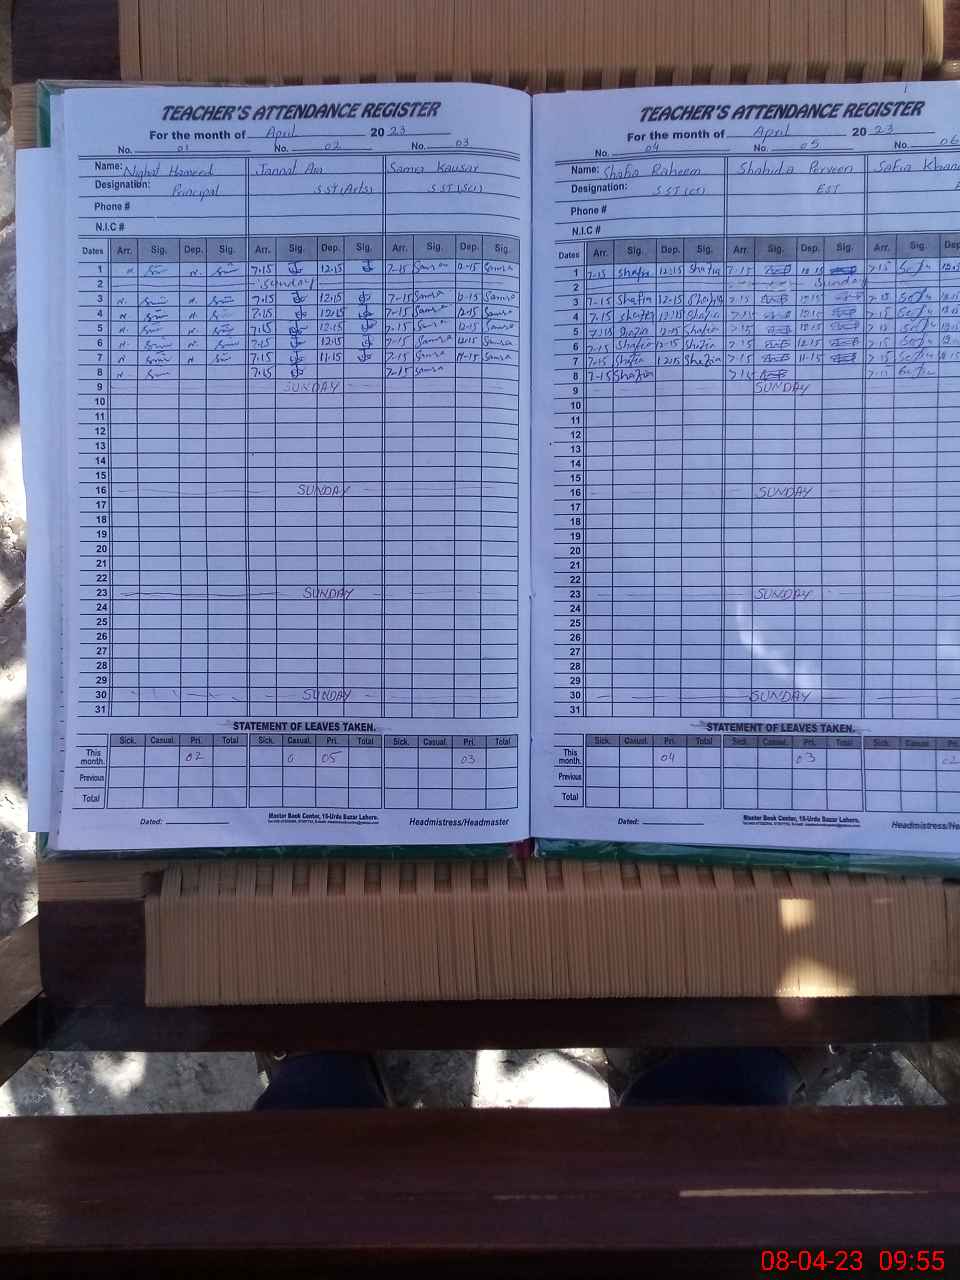 TEACHER'S ATTENDANCE REGISTER
For the month of April 2023
No. 01 No. 02 No. 03
Name: Nighat Hameed Jannat Ara Samra Kausar
Designation: Principal SST(Arts) SST(Sci)
Phone #
N.I.C #
Dates Arr. Sig. Dep. Sig. Arr. Sig. Dep. Sig. Arr. Sig. Dep. Sig.
1 7.15 12.15 7-15 Samra 12-15 Samra
2 Sunday
3 7.15 12.15 7-15 Samra 12-15 Samra
4 7.15 12.15 7-15 Samra 12-15 Samra
5 7.15 12.15 7-15 Samra 12-15 Samra
6 7.15 12.15 7-15 Samra 12-15 Samra
7 7.15 11.15 7-15 Samra 11-15 Samra
8 7.15 7-15 Samra
9 SUNDAY
10
11
12
13
14
15
16 SUNDAY
17
18
19
20
21
22
23 SUNDAY
24
25
26
27
28
29
30 SUNDAY
31
STATEMENT OF LEAVES TAKEN.
Sick. Casual. Pri. Total Sick. Casual. Pri. Total Sick. Casual. Pri. Total
This month. 02 0 05 03
Previous
Total
Dated: Master Book Center, 15-Urdu Bazar Lahore. Headmistress/Headmaster
TEACHER'S ATTENDANCE REGISTER
For the month of April 2023
No. 04 No. 05 No. 06
Name: Shafia Raheem Shahida Perveen Safia
Designation: EST
Phone #
N.I.C #
Dates Arr. Sig. Dep. Sig. Arr. Sig. Dep. Sig. Arr. Sig. Dep.
1 7-15 Shafia 12-15 Shafia 7.15 12.15 7.15
2 Sunday
3 7-15 Shafia 12-15 Shafia 7.15 12.15 7.15
4 7.15 Shafia 12.15 Shafia 7.15 12.15 7.15
5 7.15 Shafia 12.15 Shafia 7.15 12.15 7.15
6 7-15 Shafia 12-15 Shafia 7.15 12.15 7.15
7 7-15 Shafia 12.15 Shafia 7.15 11.15 7.15
8 7-15 Shafia 7.15 7.15
9 SUNDAY
10
11
12
13
14
15
16 SUNDAY
17
18
19
20
21
22
23 SUNDAY
24
25
26
27
28
29
30 SUNDAY
31
STATEMENT OF LEAVES TAKEN.
Sick. Casual. Pri. Total Sick. Casual. Pri. Total Sick. Casual. Pri.
This month. 04 03 02
Previous
Total
Dated: Master Book Center, 15-Urdu Bazar Lahore. Headmistress/He
08-04-23 09:55